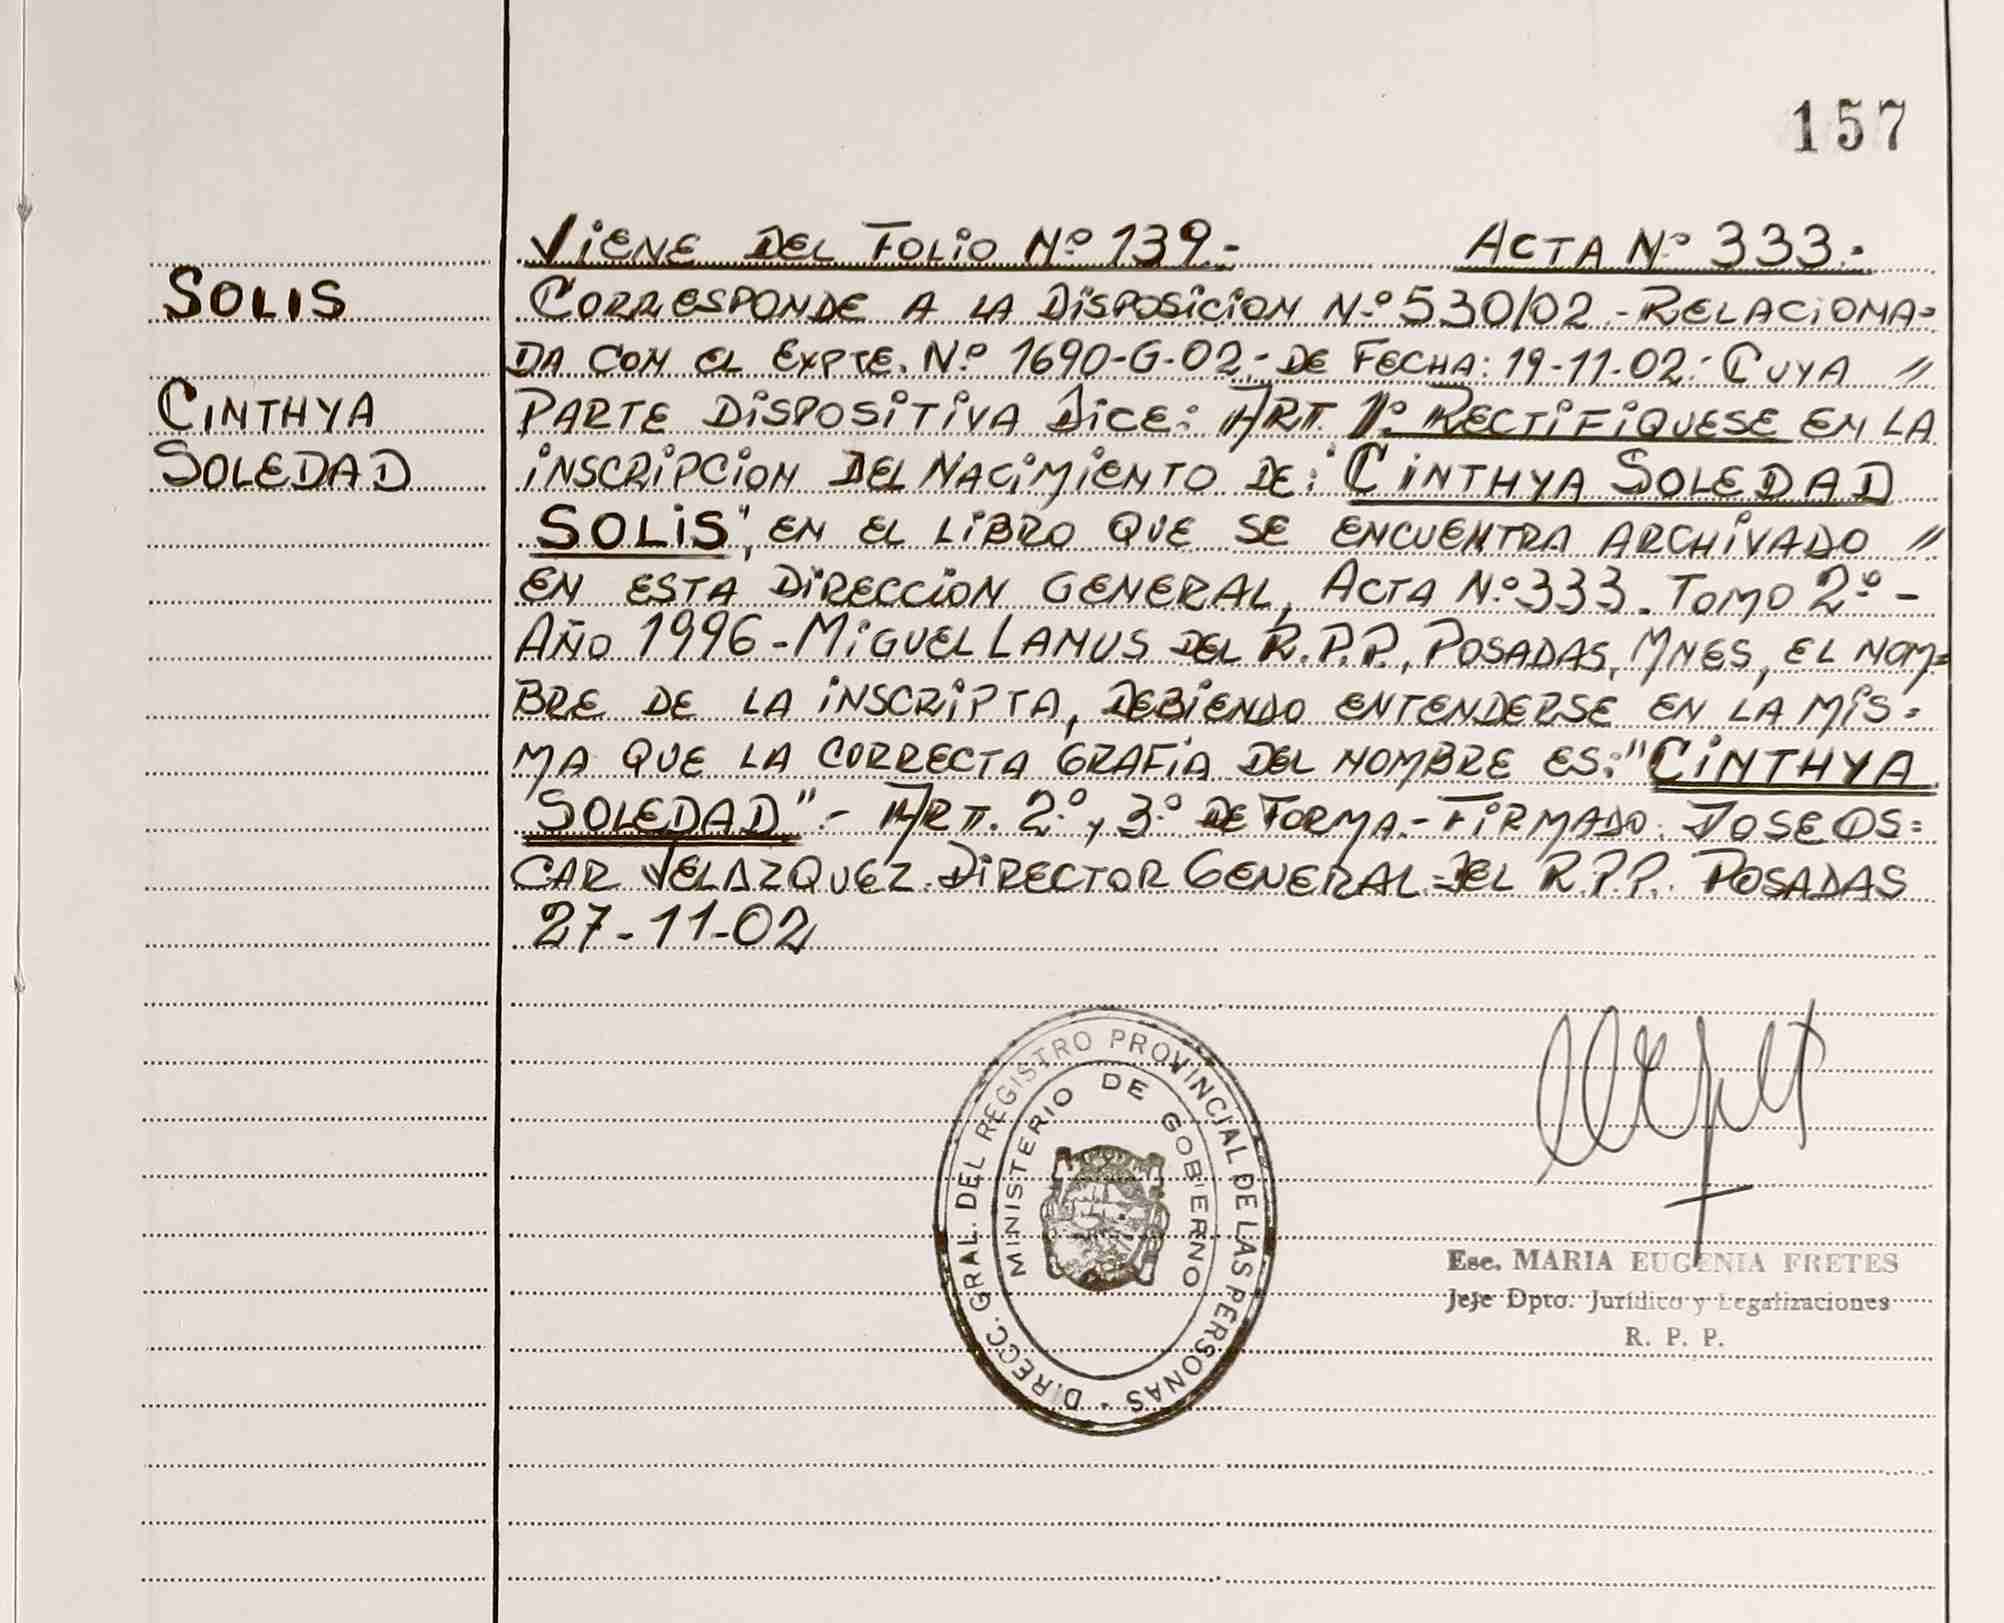 157
VIENE DEL FOLIO Nº 139.- ACTA Nº 333.-
SOLIS
CORRESPONDE A LA DISPOSICION Nº 530/02.- RELACIONA=
DA CON EL EXPTE. Nº 1690-G-02.- DE FECHA: 19-11-02.- CUYA "
CINTHYA
PARTE DISPOSITIVA DICE: ART. 1º. RECTIFIQUESE EN LA
SOLEDAD
INSCRIPCION DEL NACIMIENTO DE: "CINTHYA SOLEDAD
SOLIS", EN EL LIBRO QUE SE ENCUENTRA ARCHIVADO "
EN ESTA DIRECCION GENERAL, ACTA Nº 333. TOMO 2º -
AÑO 1996 - MIGUEL LANUS DEL R.P.P., POSADAS, MNES, EL NOM=
BRE DE LA INSCRIPTA, DEBIENDO ENTENDERSE EN LA MIS=
MA QUE LA CORRECTA GRAFIA DEL NOMBRE ES: "CINTHYA
SOLEDAD".- ART. 2º y 3º DE FORMA.- FIRMADO: JOSE OS=
CAR VELAZQUEZ. DIRECTOR GENERAL DEL R.P.P. POSADAS
27-11-02
DIRECC. GRAL. DEL REGISTRO PROVINCIAL DE LAS PERSONAS -
MINISTERIO DE GOBIERNO
Esc. MARIA EUGENIA FRETES
Jefe Dpto. Jurídico y Legalizaciones
R. P. P.